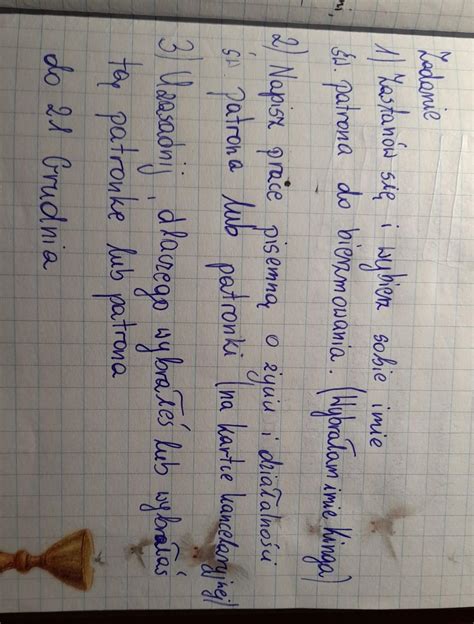 Zadanie
1) Zastanów się i wybierz sobie imie
św. patrona do bierzmowania. (Wybrałam imie Kinga)
2) Napisz prace pisemną o życiu i działalności
św. patrona lub patronki (na kartce kancelaryjnej)
3) Uzasadnij, dlaczego wybrałeś lub wybrałaś
tą patronke lub patrona
do 21 Grudnia